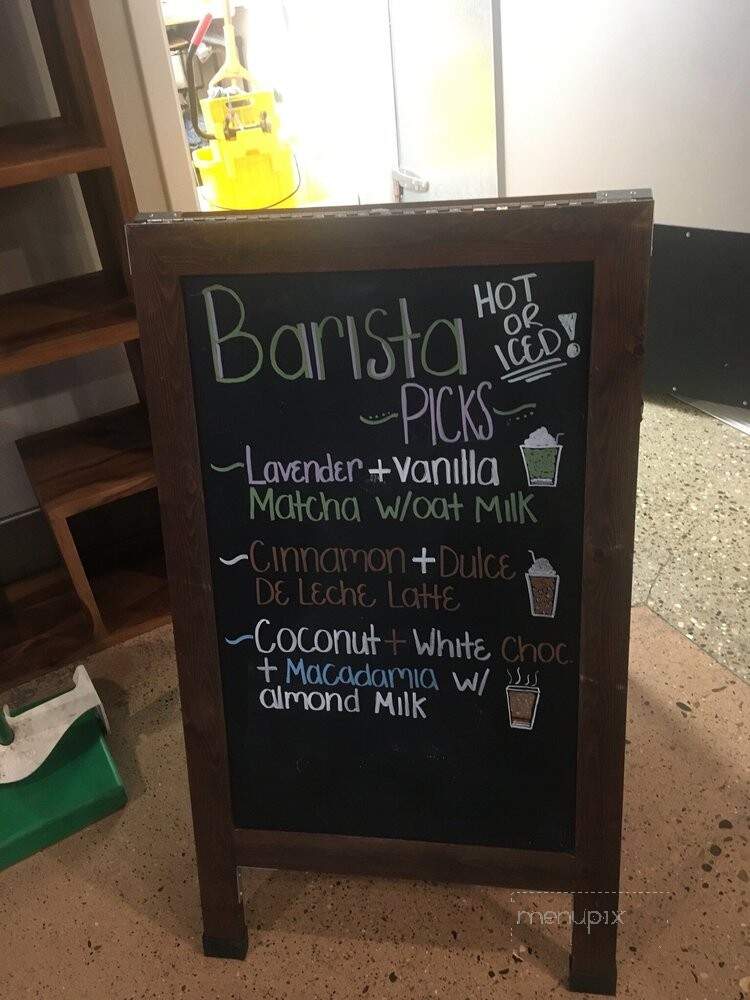 Barista
HOT
OR
ICED!
PICKS
Lavender + Vanilla
Matcha w/oat Milk
Cinnamon + Dulce
De Leche Latte
Coconut + White Choc.
+ Macadamia w/
almond Milk
menupix